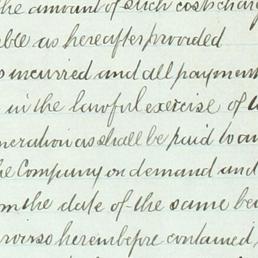 the amount of such costs charg
able as hereafter provided
incurred and all payment
in the lawful exercise of
neration as shall be paid to an
the Company on demand and
om the date of the same be
hereinbefore contained,